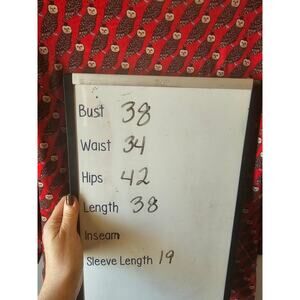 Bust 38
Waist 34
Hips 42
Length 38
Inseam
Sleeve Length 19